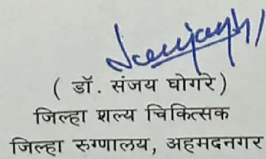 ( डॉ. संजय घोगरे )
जिल्हा शल्य चिकित्सक
जिल्हा रुग्णालय, अहमदनगर